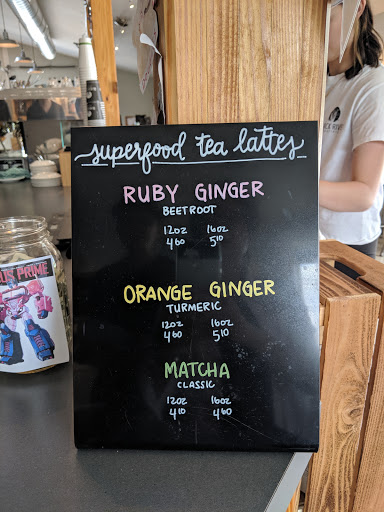 superfood tea lattes
RUBY GINGER
BEETROOT
12oz 16oz
4 60 5 10
ORANGE GINGER
TURMERIC
12oz 16oz
4 60 5 10
MATCHA
CLASSIC
12oz 16oz
4 10 4 60
US PRIME